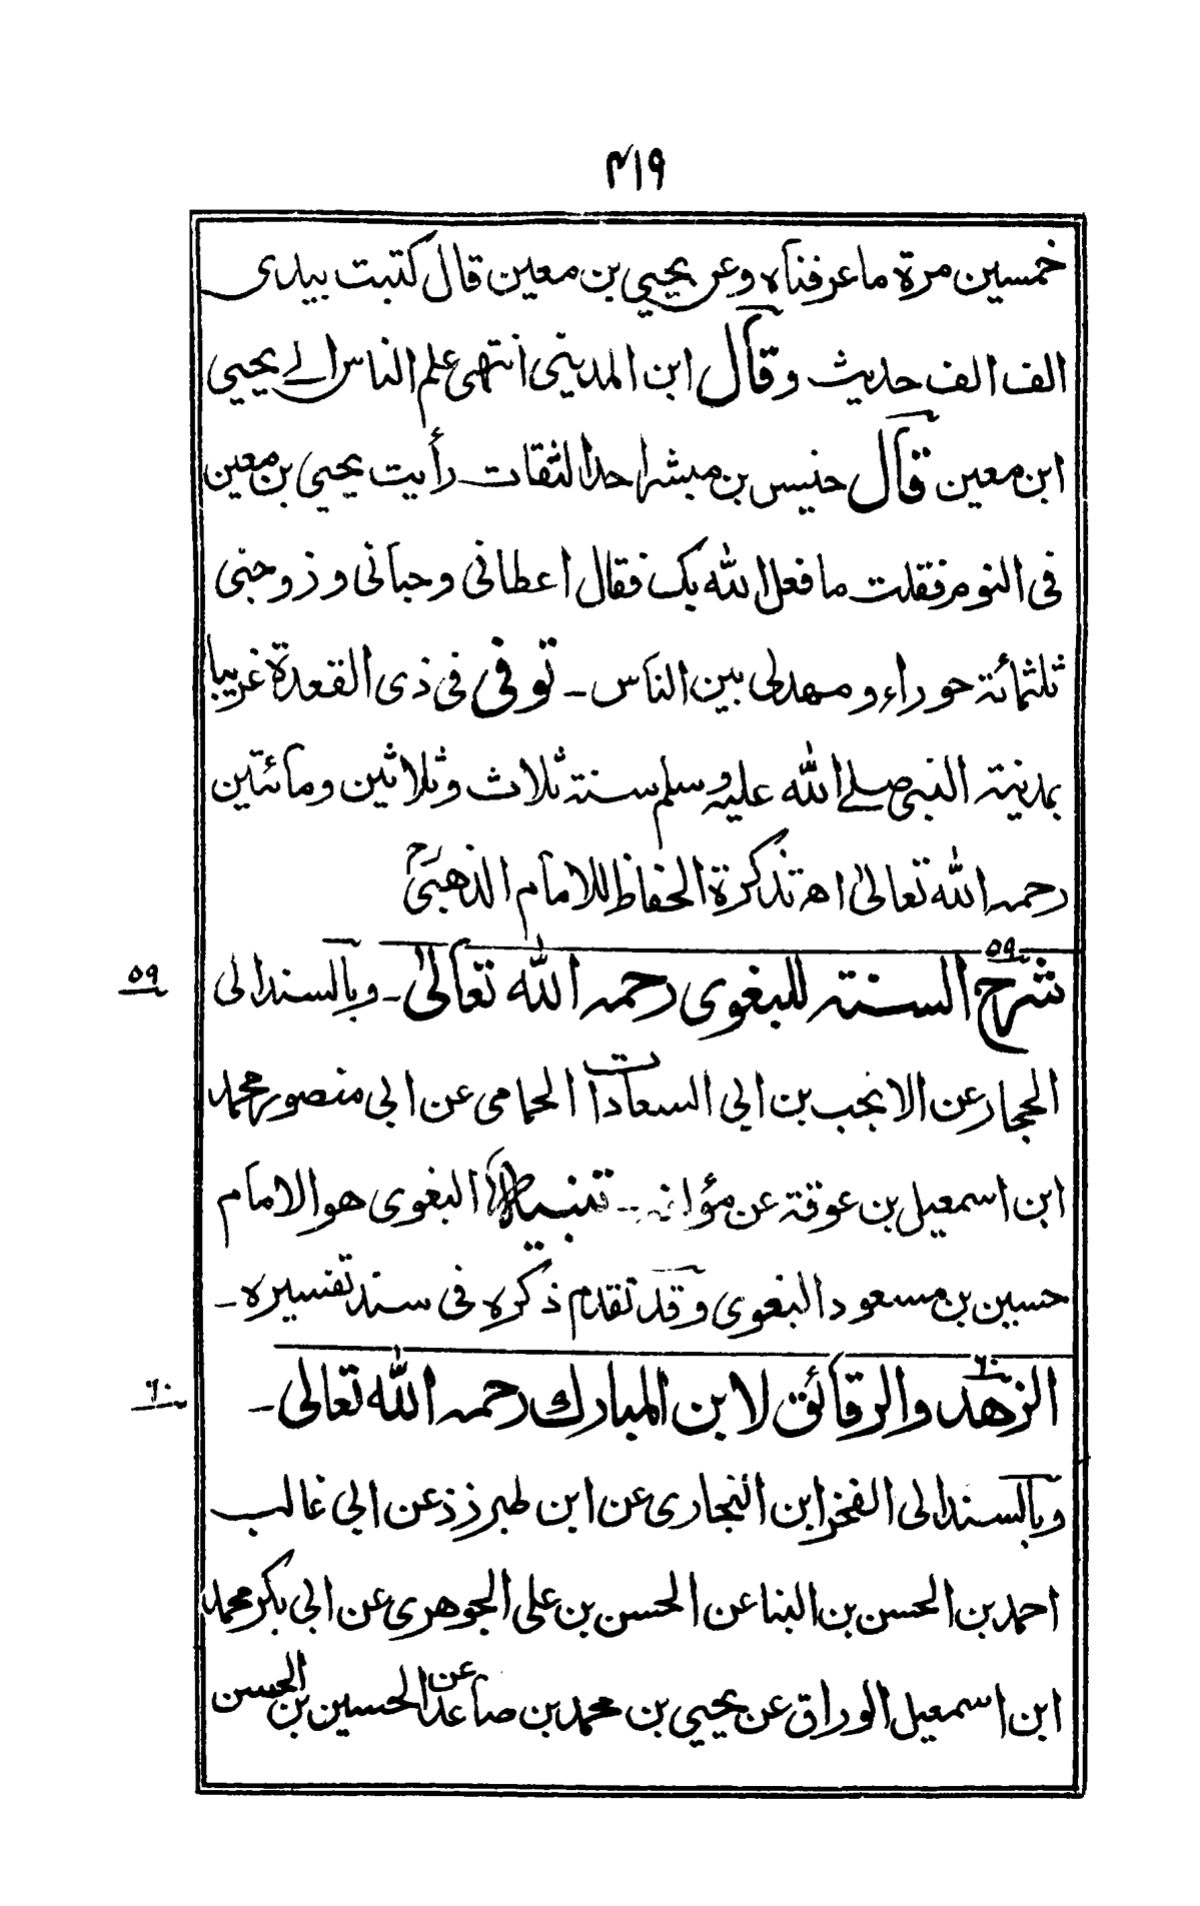 ٤١٩
خمسين مرة ما عرفناه وعن يحيي بن معين قال كتبت بيدى
الف الف حديث وقال ابن المدينى انتهى علم الناس الے يحيي
ابن معين قال حنيس بن مبشر احد الثقات رأيت يحيي بن معين
فى النوم فقلت ما فعل الله بك فقال اعطانى وحبانى وزوجنى
ثلثمائة حوراء ومهد لى بين الناس ـ توفى فى ذى القعدة غريبا
بمدينة النبى صلے الله عليه وسلم سنة ثلاث وثلاثين ومائتين
رحمه الله تعالىٰ اھ تذكرة الحفاظ للامام الذهبىؒ
٥٩ شرح السنة للبغوى رحمه الله تعالىٰ ـ وبالسند الى ٥٩
الحجار عن الانجب بن ابي السعادات الحمامى عن ابي منصور محمد
ابن اسمعيل بن عوقة عن مؤلفه ـ تنبيه البغوى هو الامام
حسين بن مسعود البغوى وقد تقدم ذكره فى سند تفسيره ـ
٦٠ الزهد والرقائق لابن المبارك رحمه الله تعالى ـ ٦٠
وبالسند الى الفخر ابن النجارى عن ابن طبرزذ عن ابي غالب
احمد بن الحسن بن البنا عن الحسن بن على الجوهرى عن ابي بكر محمد
ابن اسمعيل الوراق عن يحيي بن محمد بن صاعد عن الحسين بن الحسن